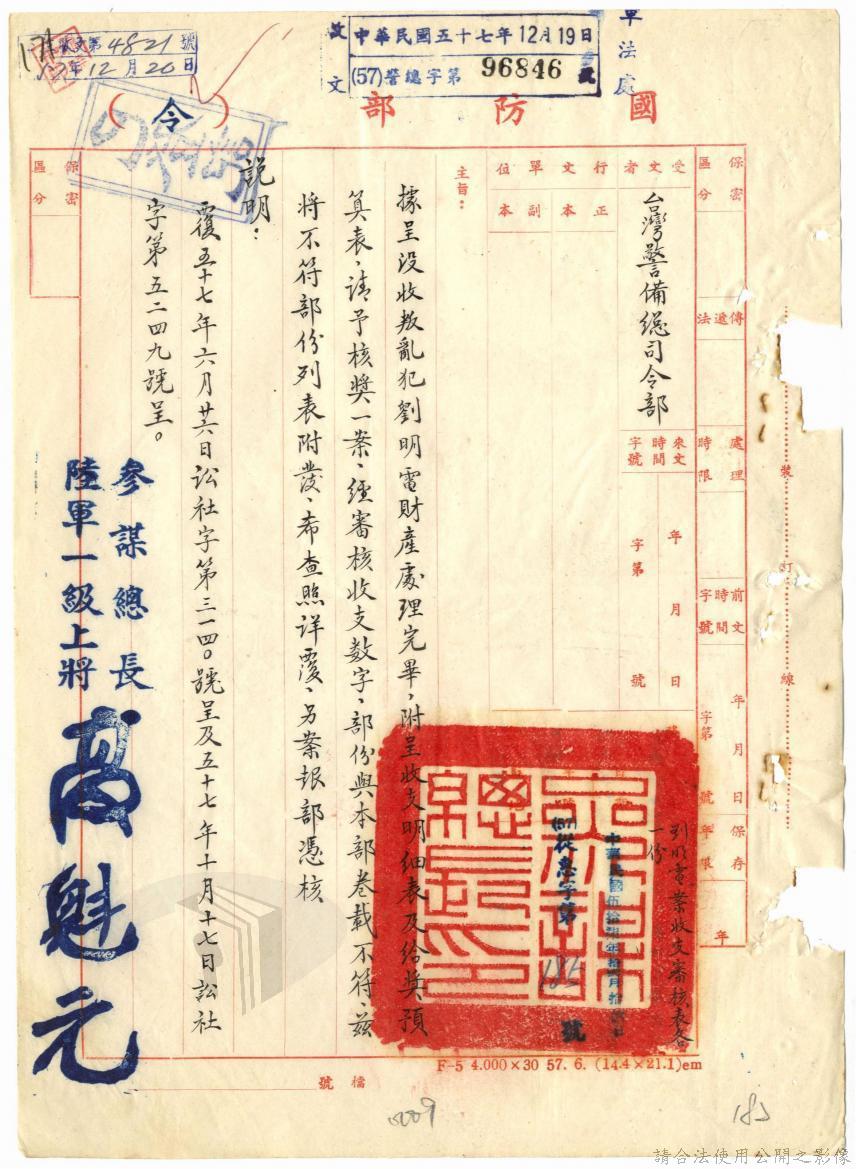 國防部(令)
軍法處
收文
中華民國五十七年12月19日
(57)警總字第 96846 號
收文第4821號
57年12月20日
保密區分
傳遞法
處理時限
前文時間字號
年 月 日
字第 號
保存年限
年
受文者
台灣警備總司令部
來文時間字號
年 月 日
字第 號
行文
正本
單位
副本
劉明電業收支審核表各
一份
中華民國伍拾柒年拾
(57)從惠字第 185 號
參謀總長印
保密區分
主旨：
據呈没收叛亂犯劉明電財產處理完畢，附呈收支明細表及給獎預
算表，請予核獎一案，經審核收支数字，部份與本部卷載不符，茲
將不符部份列表附發，希查照詳覆，另案報部憑核
説明：
覆五十七年六月廿六日訟社字第三一四〇號呈及五十七年十月十七日訟社
字第五二四九號呈。
參謀總長
陸軍一級上將
高魁元
裝 訂 線
F-5 4.000×30 57. 6. (14.4×21.1)em
檔 號
185
請合法使用公開之影像